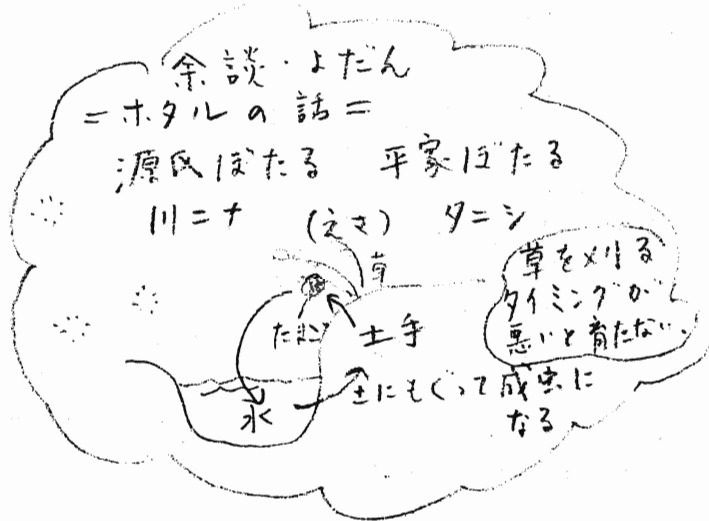 余談・よだん
=ホタルの話=
源氏ぼたる 平家ぼたる
川ニナ (えさ) タニシ
草
草を刈る
タイミングが
悪いと育たない。
たまご
土手
水
土にもぐって成虫に
なる